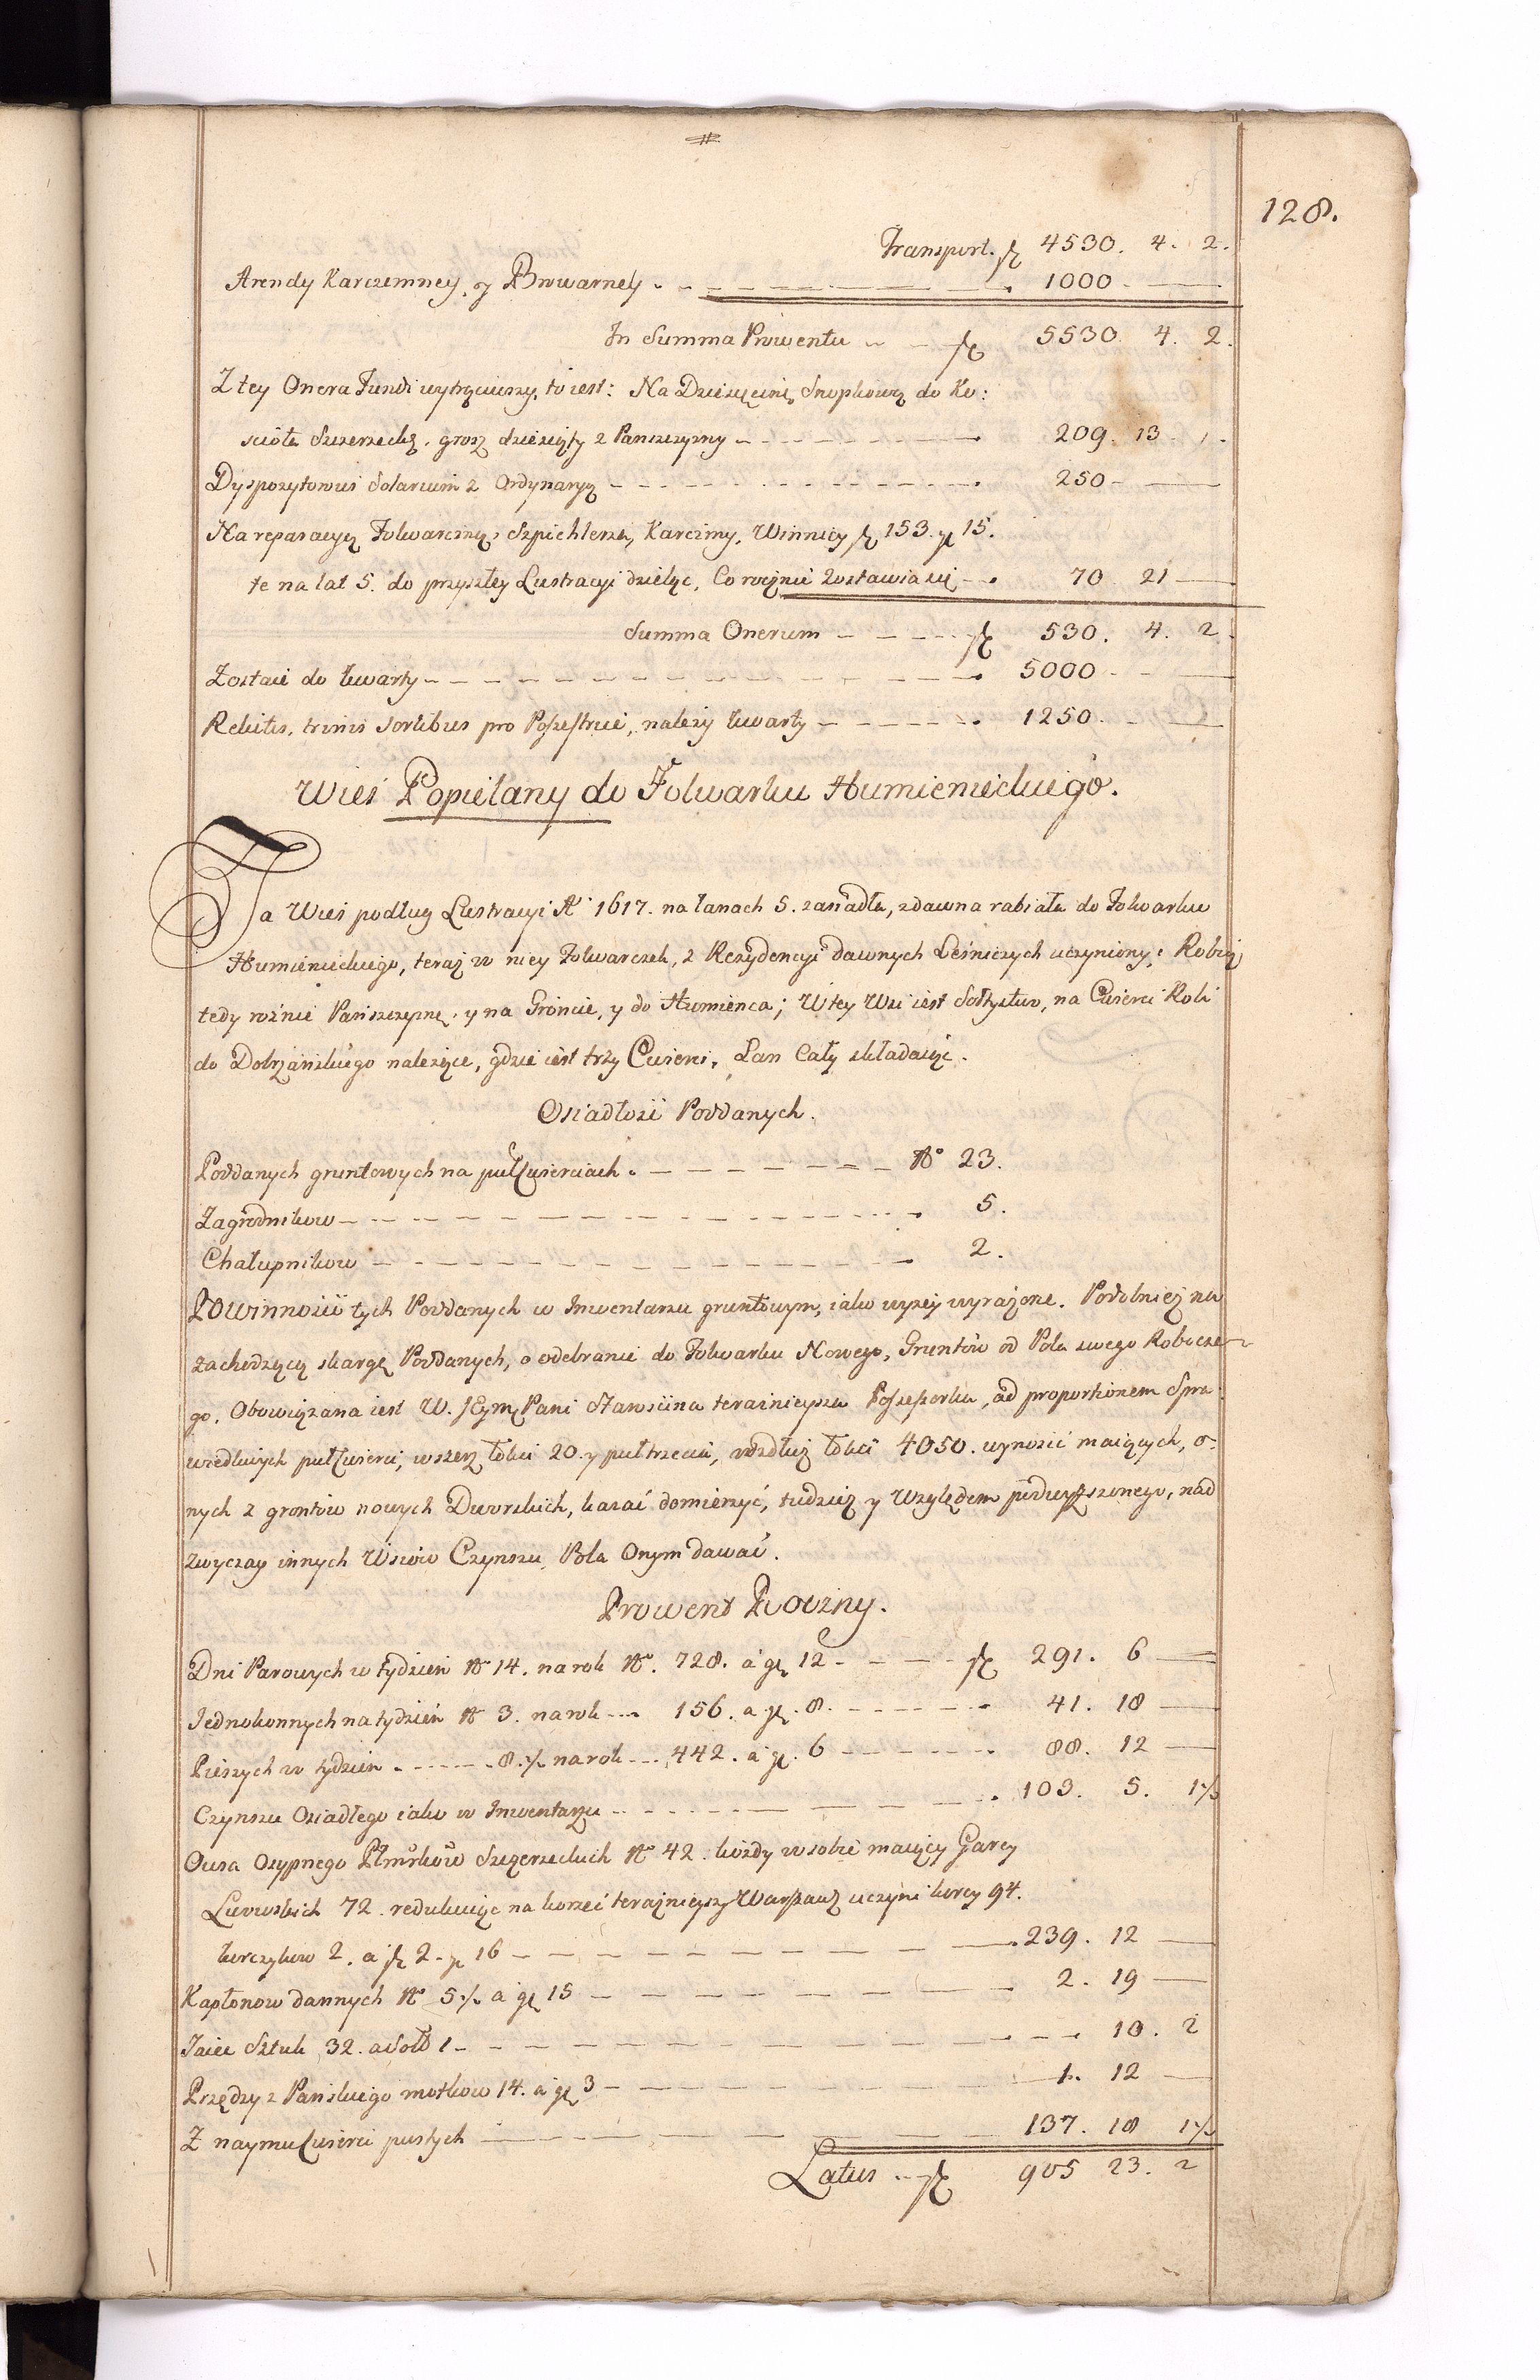 128.
Transport. fl 4530. 4. 2.
Arendy Karczemney, y Browarney 1000
In Summa Prowentu fl 5530 4. 2.
Z tey Onera Fundi wytrąciwszy, to iest: Na Dziesięcinę Snopkową do Ko:
scioła Szczerzecką, grosz dziesiąty z Panszczyzny 209. 13
Dyspozytowi Solarium z Ordynaryą 250
Na reparacyą Folwarczną, Szpichlerza, Karczmy, Winnicy fl 153. gl 15.
te na lat 5. do przyszłey Lustracyi dzieląc, Corocznie zostawia się 70 21
Summa Onerum fl 530. 4. 2
Zostaie do kwarty 5000
Relictis, trinis sortibus pro Possessore, należy kwarty 1250.
Wieś Popielany do Folwarku Humienieckiego.
Ta Wieś podług Lustracyi Ao 1617. na łanach 5. zasiadła, zdawna rabiała do Folwarku
Humienieckiego, teraz w niey Folwarczek, z Rezydencyi dawnych Leśniczych uczyniony; Robią
tedy rożnie Pańszczyznę, y na Groncie, y do Humienca; W tey Wsi iest Sołtystwo, na Cwierci Roli
do Dobrzańskiego należące, gdzie iest trzy Cwierci, Łan Cały składaiąc.
Osiadłość Poddanych.
Poddanych gruntowych na pułCwierciach No 23.
Zagrodnikow 5.
Chałupnikow 2.
Powinności tych Poddanych w Inwentarzu gruntowym, iako wyżey wyrażone. Podobnież na
zachodzącą skargę Poddanych, o odebranie do Folwarku Nowego, Gruntów od Pola swego Robocze-
go, Obowiązana iest W. JEymć Pani Starościna teraznieysza Possessorka, ad proportionem Spra-
wiedliwych pułCwierci, wszerz łokci 20. y puł trzecia, wzdłuż łokci 4050. wynosić maiących, o-
nych z grontów nowych Dworskich, kazać domierzyć, tudziesz y Względem podwyższonego, nad
zwyczay innych Wsiów Czynszu, Pola Onym dawać.
Prowent Roczny.
Dni Parowych w tydzień No 14. na rok No. 728. a gl 12 fl 291. 6
Jednokonnych na tydzień No 3. na rok 156. a gl. 8. 41. 18
Pieszych w tydzien 8.½ na rok 442. a gl. 6 88. 12
Czynszu Osiadłego iako w Inwentarzu 103. 5. 1½
Owsa Osypnego Szczerzeckich No 42. każdy w sobie maiący Garcy
Lwowskich 72. redukuiąc na korzec teraznieyszy Warszawz uczyni korcy 94.
korczykow 2. a fl 2. gl 16 239. 12
Kapłonow dannych No 5½ a gl 15 2. 19
Jaiec Sztuk 32. a Soll 1 10. 2
Przędzy z Pańskiego motkow 14. a gl 3 1. 12
Z naymu Cwierci pustych 137. 18 1½
Latus fl 905 23. 2